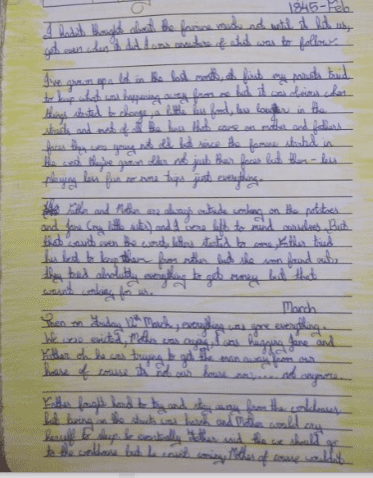 1845-Feb
I hadn't thought about the famine much not until it hit us,
yet even when it did I was unaware of what was to follow.
I've grown up a lot in the last month, at first my parents tried
to keep what was happening away from me but it was obvious when
things started to change, a little less food, less laughter in the
streets and most of all the lines that came on mother and fathers
faces they were young not old but since the famine started in
the card they've grown older not just their faces but them - less
playing less fun no more trips just everything.
Father and Mother are always outside working on the potatoes
and Jane (my little sister) and I were left to mind ourselves. But
that wasn't even the worst, letters started to come, Father tried
his best to keep them from mother but she soon found out,
they tried absolutely everything to get money but that
wasn't working for us.
March
Then on Friday 12th March, everything was gone everything.
We were evicted, Mother was crying, I was hugging Jane and
Father oh he was trying to get the man away from our
house of course it's not our house now,..... not anymore.
Father fought hard to try and stay away from the workhouses
but living on the streets was harsh and Mother would cry
herself to sleep so eventually Father said the we should go
to the workhouse but he wasn't coming, Mother of course wouldn't